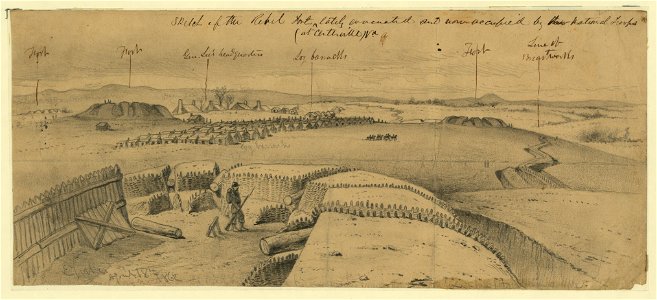 Sketch of the Rebel Fort lately evacuated and now occupied by National troops
(at Centreville, Va
Fort
Fort
Gen Lee's headquarters
Log barracks
Fort
Line of
Breastworks